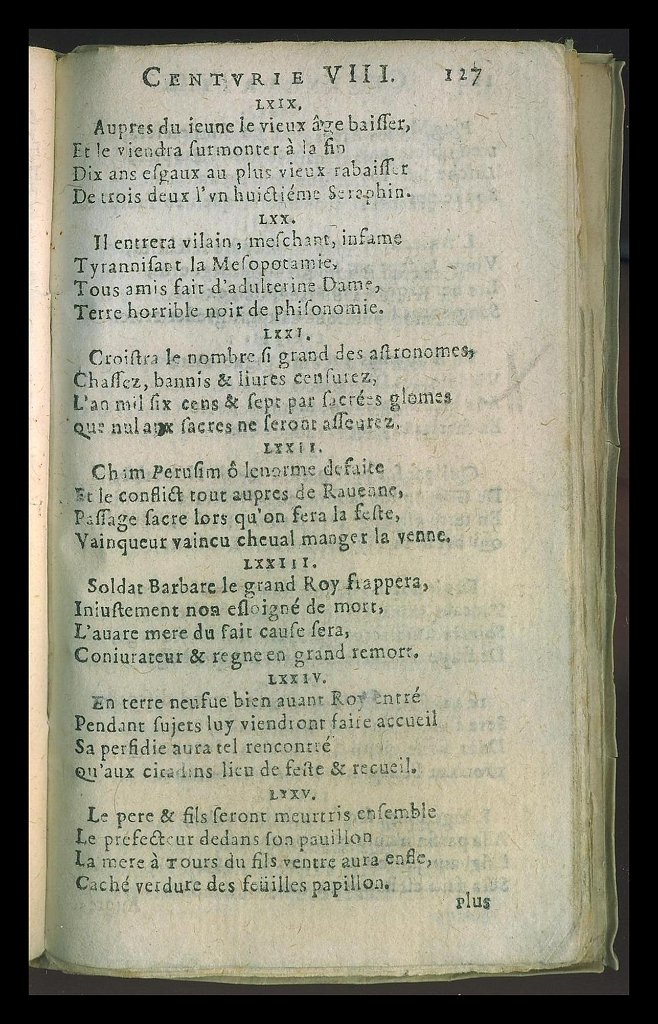 CENTVRIE VIII. 127
LXIX.
Aupres du ieune le vieux âge baiſſer,
Et le viendra ſurmonter à la fin
Dix ans eſgaux au plus vieux rabaiſſer
De trois deux l'vn huictiéme Seraphin.
LXX.
Il entrera vilain, meſchant, infame
Tyranniſant la Meſopotamie,
Tous amis fait d'adulterine Dame,
Terre horrible noir de phiſonomie.
LXXI.
Croiſtra le nombre ſi grand des aſtronomes,
Chaſſez, bannis & liures cenſurez,
L'an mil ſix cens & ſept par ſacrées glomes
Que nul aux ſacres ne ſeront aſſeurez.
LXXII.
Cham Peruſim ô lenorme defaite
Et le conflict tout aupres de Rauenne,
Paſſage ſacre lors qu'on fera la feſte,
Vainqueur vaincu cheual manger la venne.
LXXIII.
Soldat Barbare le grand Roy frappera,
Iniuſtement non eſloigné de mort,
L'auare mere du fait cauſe ſera,
Coniurateur & regne en grand remort.
LXXIV.
En terre neufue bien auant Roy entré
Pendant ſujets luy viendront faire accueil
Sa perfidie aura tel rencontré
Qu'aux citadins lieu de feſte & recueil.
LXXV.
Le pere & fils ſeront meurtris enſemble
Le prefecteur dedans ſon pauillon
La mere à Tours du fils ventre aura enfle,
Caché verdure des feüilles papillon.
plus